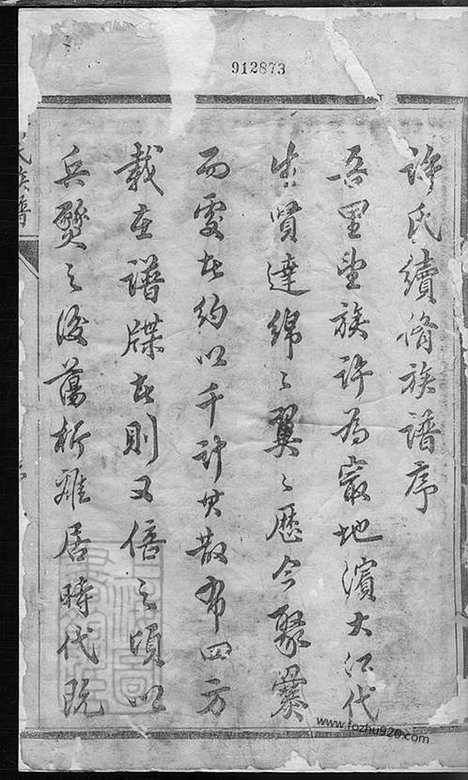 912873
許氏續脩族譜序
吾里望族許為最地濱大江代
生賢達綿〻翼〻歷今聚爨
而處者約以千計其散布四方
載在譜牒者則又倍之頃以
兵燹之後蕩析離居時代既
氏族譜
www.fozhu920.com